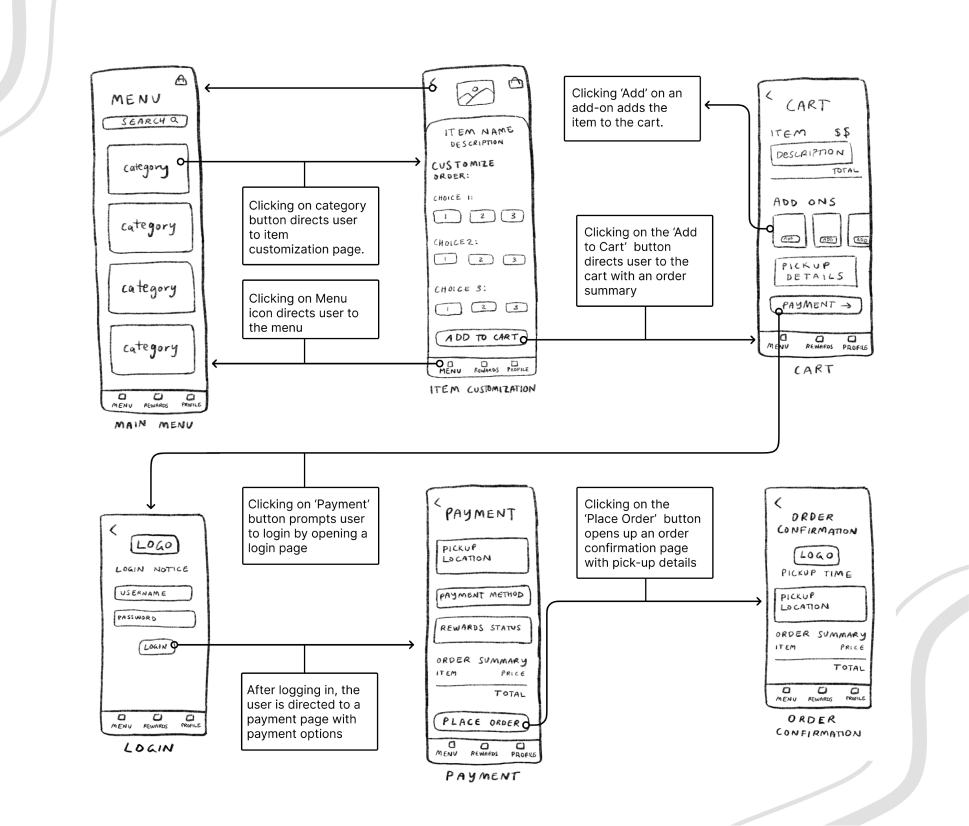 MENU
SEARCH
category
category
category
category
MENU REWARDS PROFILE
MAIN MENU
Clicking on category
button directs user
to item
customization page.
Clicking on Menu
icon directs user to
the menu
ITEM NAME
DESCRIPTION
CUSTOMIZE
ORDER:
CHOICE 1:
1 2 3
CHOICE 2:
1 2 3
CHOICE 3:
1 2 3
ADD TO CART
MENU REWARDS PROFILE
ITEM CUSTOMIZATION
Clicking 'Add' on an
add-on adds the
item to the cart.
Clicking on the 'Add
to Cart' button
directs user to the
cart with an order
summary
< CART
ITEM $$
DESCRIPTION
TOTAL
ADD ONS
ADD ADD ADD
PICKUP
DETAILS
PAYMENT →
MENU REWARDS PROFILE
CART
Clicking on 'Payment'
button prompts user
to login by opening a
login page
<
LOGO
LOGIN NOTICE
USERNAME
PASSWORD
LOGIN
MENU REWARDS PROFILE
LOGIN
After logging in, the
user is directed to a
payment page with
payment options
< PAYMENT
PICKUP
LOCATION
PAYMENT METHOD
REWARDS STATUS
ORDER SUMMARY
ITEM PRICE
TOTAL
PLACE ORDER
MENU REWARDS PROFILE
PAYMENT
Clicking on the
'Place Order' button
opens up an order
confirmation page
with pick-up details
<
ORDER
CONFIRMATION
LOGO
PICKUP TIME
PICKUP
LOCATION
ORDER SUMMARY
ITEM PRICE
TOTAL
MENU REWARDS PROFILE
ORDER
CONFIRMATION